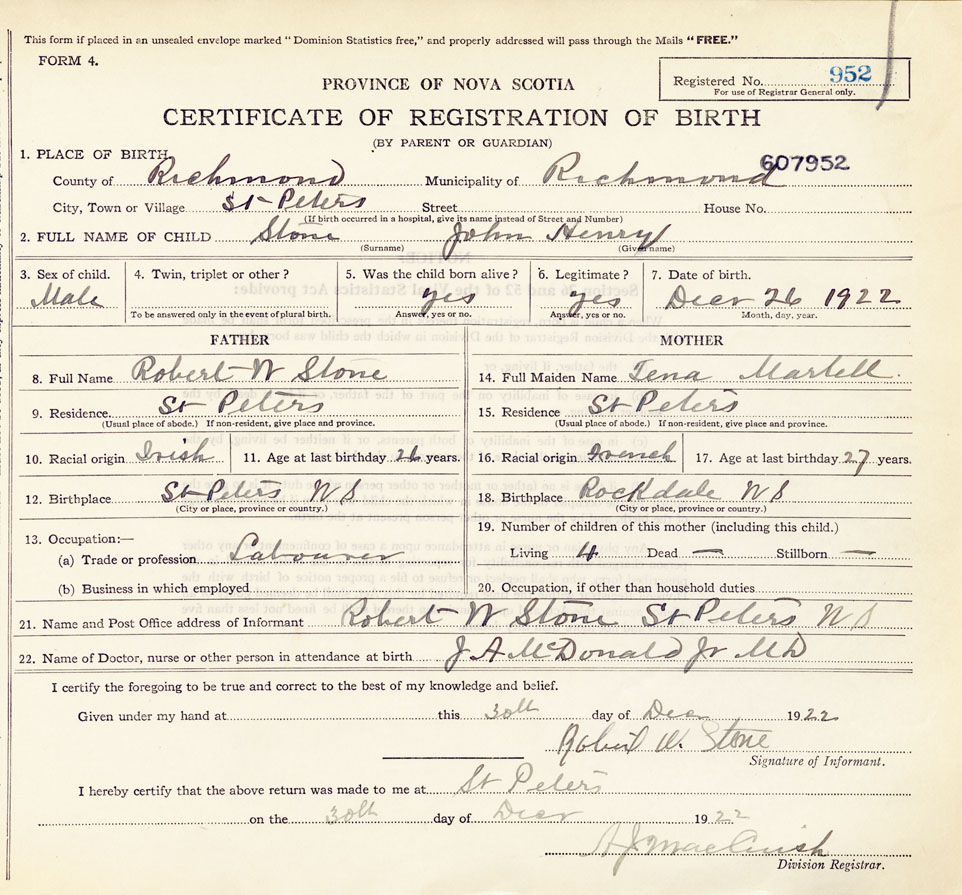 This form if placed in an unsealed envelope marked "Dominion Statistics free," and properly addressed will pass through the Mails "FREE."
FORM 4.
Registered No. 952
For use of Registrar General only.
PROVINCE OF NOVA SCOTIA
CERTIFICATE OF REGISTRATION OF BIRTH
(BY PARENT OR GUARDIAN)
607952
1. PLACE OF BIRTH
County of Richmond Municipality of Richmond
City, Town or Village St Peters Street House No.
(If birth occurred in a hospital, give its name instead of Street and Number)
2. FULL NAME OF CHILD Stone John Henry
(Surname) (Given name)
3. Sex of child. 4. Twin, triplet or other? 5. Was the child born alive? 6. Legitimate? 7. Date of birth.
Male yes yes Decr 26 1922
To be answered only in the event of plural birth. Answer, yes or no. Answer, yes or no. Month, day, year.
FATHER MOTHER
8. Full Name Robert W Stone 14. Full Maiden Name Tena Martell.
9. Residence St Peters 15. Residence St Peters
(Usual place of abode.) If non-resident, give place and province. (Usual place of abode.) If non-resident, give place and province.
10. Racial origin Irish 11. Age at last birthday 26 years. 16. Racial origin French 17. Age at last birthday 27 years.
12. Birthplace St Peters NS 18. Birthplace Rockdale NS
(City or place, province or country.) (City or place, province or country.)
13. Occupation:— 19. Number of children of this mother (including this child.)
(a) Trade or profession Labourer Living 4 Dead — Stillborn —
(b) Business in which employed 20. Occupation, if other than household duties
21. Name and Post Office address of Informant Robert W Stone St Peters NS
22. Name of Doctor, nurse or other person in attendance at birth J A McDonald Jr MD
I certify the foregoing to be true and correct to the best of my knowledge and belief.
Given under my hand at this 30th day of Decr 1922
Robert W. Stone
Signature of Informant.
I hereby certify that the above return was made to me at St Peters
on the 30th day of Decr 1922
A J MacCuish
Division Registrar.